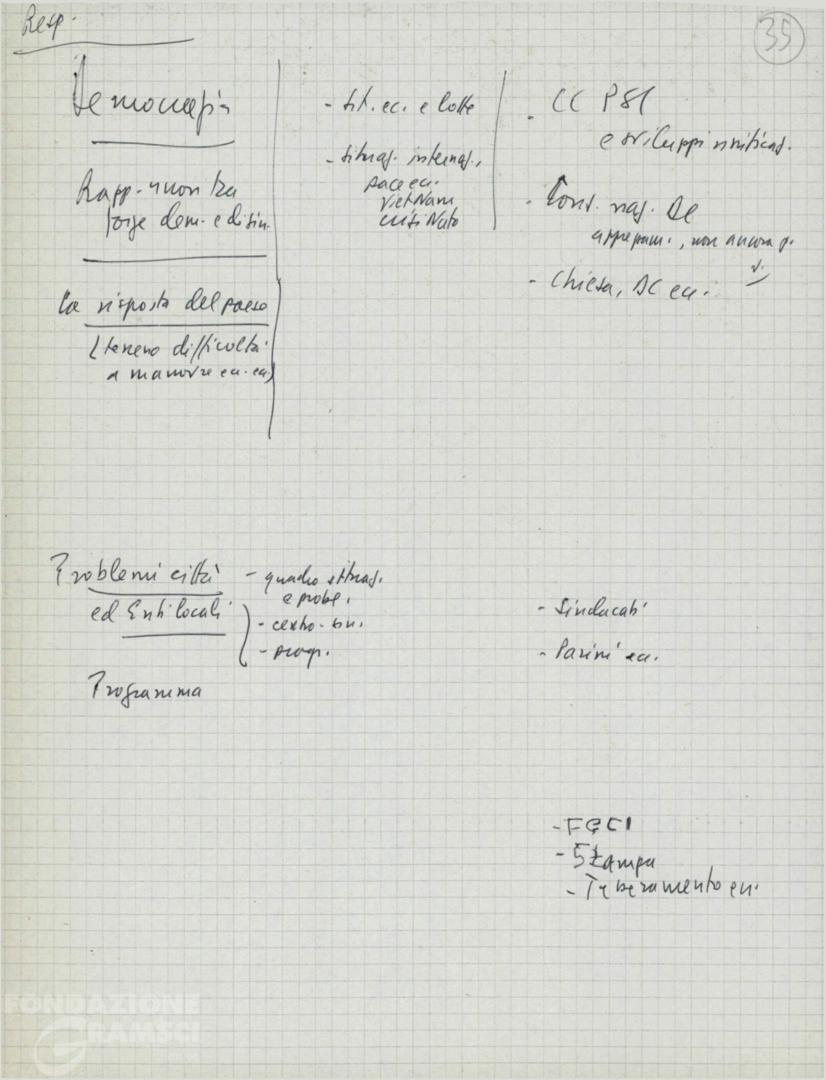 Resp.
35
Democrazia
Rapp.
forze dem. e di sin.
La risposta del paese
(terreno difficoltà
a manovre ecc. ecc.)
- sit. ec. e lotte
- situaz. internaz.,
pace ecc.
Viet Nam
crisi Nato
- CC PSI
e sviluppi
- Cons. naz. DC
, non ancora p.
- Chiesa, DC ecc.
Problemi città
ed Enti locali
- quadro situaz.
e probl.
- centro-sin.
- progr.
Programma
- Sindacati
- Partiti ecc.
- FGCI
- Stampa
- Tesseramento ecc.
FONDAZIONE
GRAMSCI